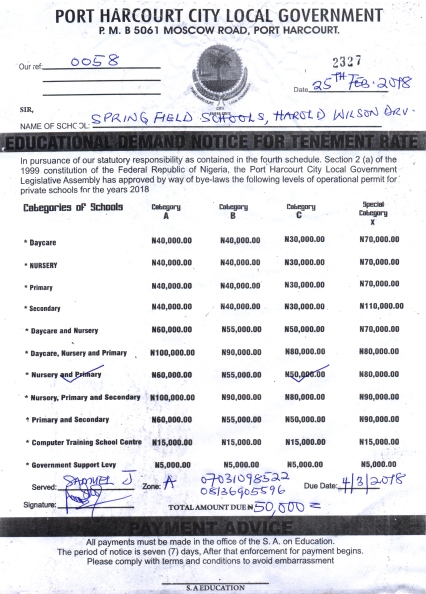 PORT HARCOURT CITY LOCAL GOVERNMENT
P. M. B 5061 MOSCOW ROAD, PORT HARCOURT.
Our ref: 0058
2327
Date 25TH FEB. 2018
SIR,
NAME OF SCHOOL: SPRINGFIELD SCHOOLS, HAROLD WILSON DRV.
EDUCATIONAL DEMAND NOTICE FOR TENEMENT RATE
In pursuance of our statutory responsibility as contained in the fourth schedule. Section 2 (a) of the
1999 constitution of the Federal Republic of Nigeria, the Port Harcourt City Local Government
Legislative Assembly has approved by way of bye-laws the following levels of operational permit for
private schools for the years 2018
Categories of Schools Category A Category B Category C Special Category X
* Daycare N40,000.00 N40,000.00 N30,000.00 N70,000.00
* NURSERY N40,000.00 N40,000.00 N30,000.00 N70,000.00
* Primary N40,000.00 N40,000.00 N30,000.00 N70,000.00
* Secondary N40,000.00 N40,000.00 N30,000.00 N110,000.00
* Daycare and Nursery N60,000.00 N55,000.00 N50,000.00 N70,000.00
* Daycare, Nursery and Primary N100,000.00 N90,000.00 N80,000.00 N80,000.00
* Nursery and Primary N60,000.00 N55,000.00 N50,000.00 N80,000.00
* Nursery, Primary and Secondary N100,000.00 N90,000.00 N80,000.00 N90,000.00
* Primary and Secondary N60,000.00 N55,000.00 N50,000.00 N90,000.00
* Computer Training School Centre N15,000.00 N15,000.00 N15,000.00 N15,000.00
* Government Support Levy N5,000.00 N5,000.00 N5,000.00 N5,000.00
Served: SAMUEL J Zone: A 07031098522 Due Date: 4/3/2018
08136905596
Signature: TOTAL AMOUNT DUE N50,000 =
PAYMENT ADVICE
All payments must be made in the office of the S. A. on Education.
The period of notice is seven (7) days, After that enforcement for payment begins.
Please comply with terms and conditions to avoid embarrassment
S. A EDUCATION